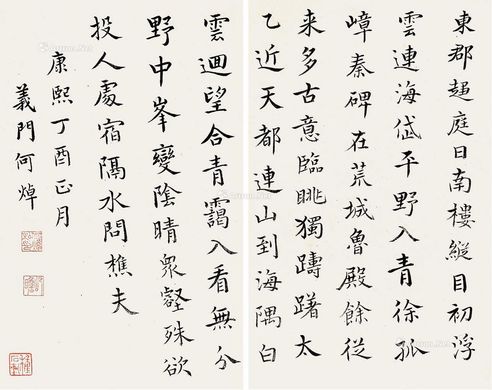 東郡趨庭日南樓縱目初浮
雲連海岱平野入青徐孤
嶂秦碑在荒城魯殿餘從
来多古意臨眺獨躊躇太
乙近天都連山到海隅白
雲迴望合青靄入看無分
野中峯變陰晴衆壑殊欲
投人處宿隔水問樵夫
康熙丁酉正月
義門何焯